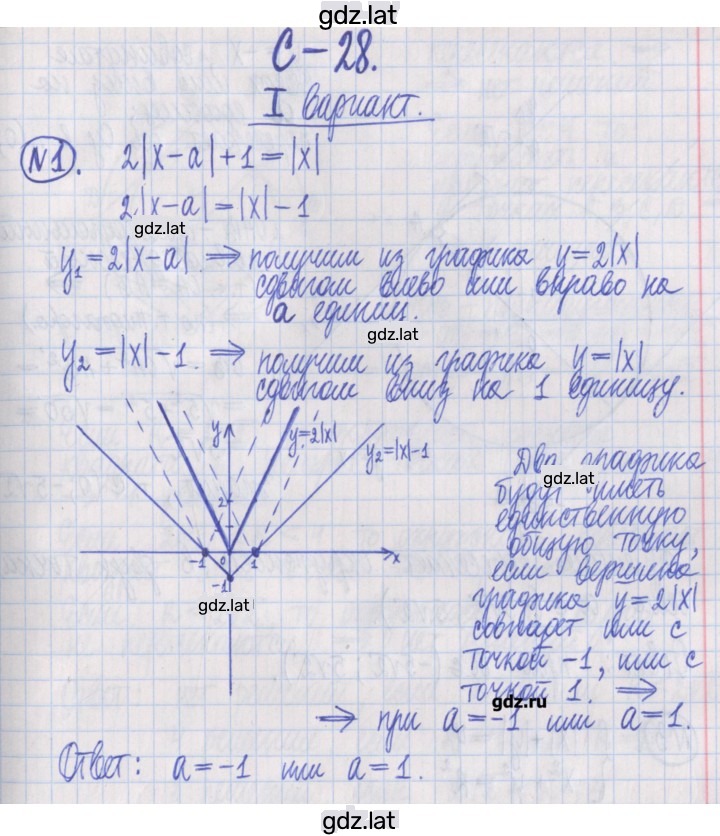 gdz.lat
С – 28.
I вариант.
№1. 2|x-a|+1=|x|
2|x-a|=|x|-1
gdz.lat
y₁=2|x-a| ⇒ получим из графика y=2|x|
сдвигом влево или вправо на
a единиц.
gdz.lat
y₂=|x|-1. ⇒ получим из графика y=|x|
сдвигом вниз на 1 единицу.
y
y=2|x|
y₂=|x|-1
2
-1 0 1 x
-1
gdz.lat
Два графика
gdz.lat
будут иметь
единственную
общую точку,
если вершина
графика y=2|x|
совпадет или с
точкой -1, или с
точкой 1. ⇒
gdz.ru
⇒ при a=-1 или a=1.
Ответ: a=-1 или a=1.
gdz.lat